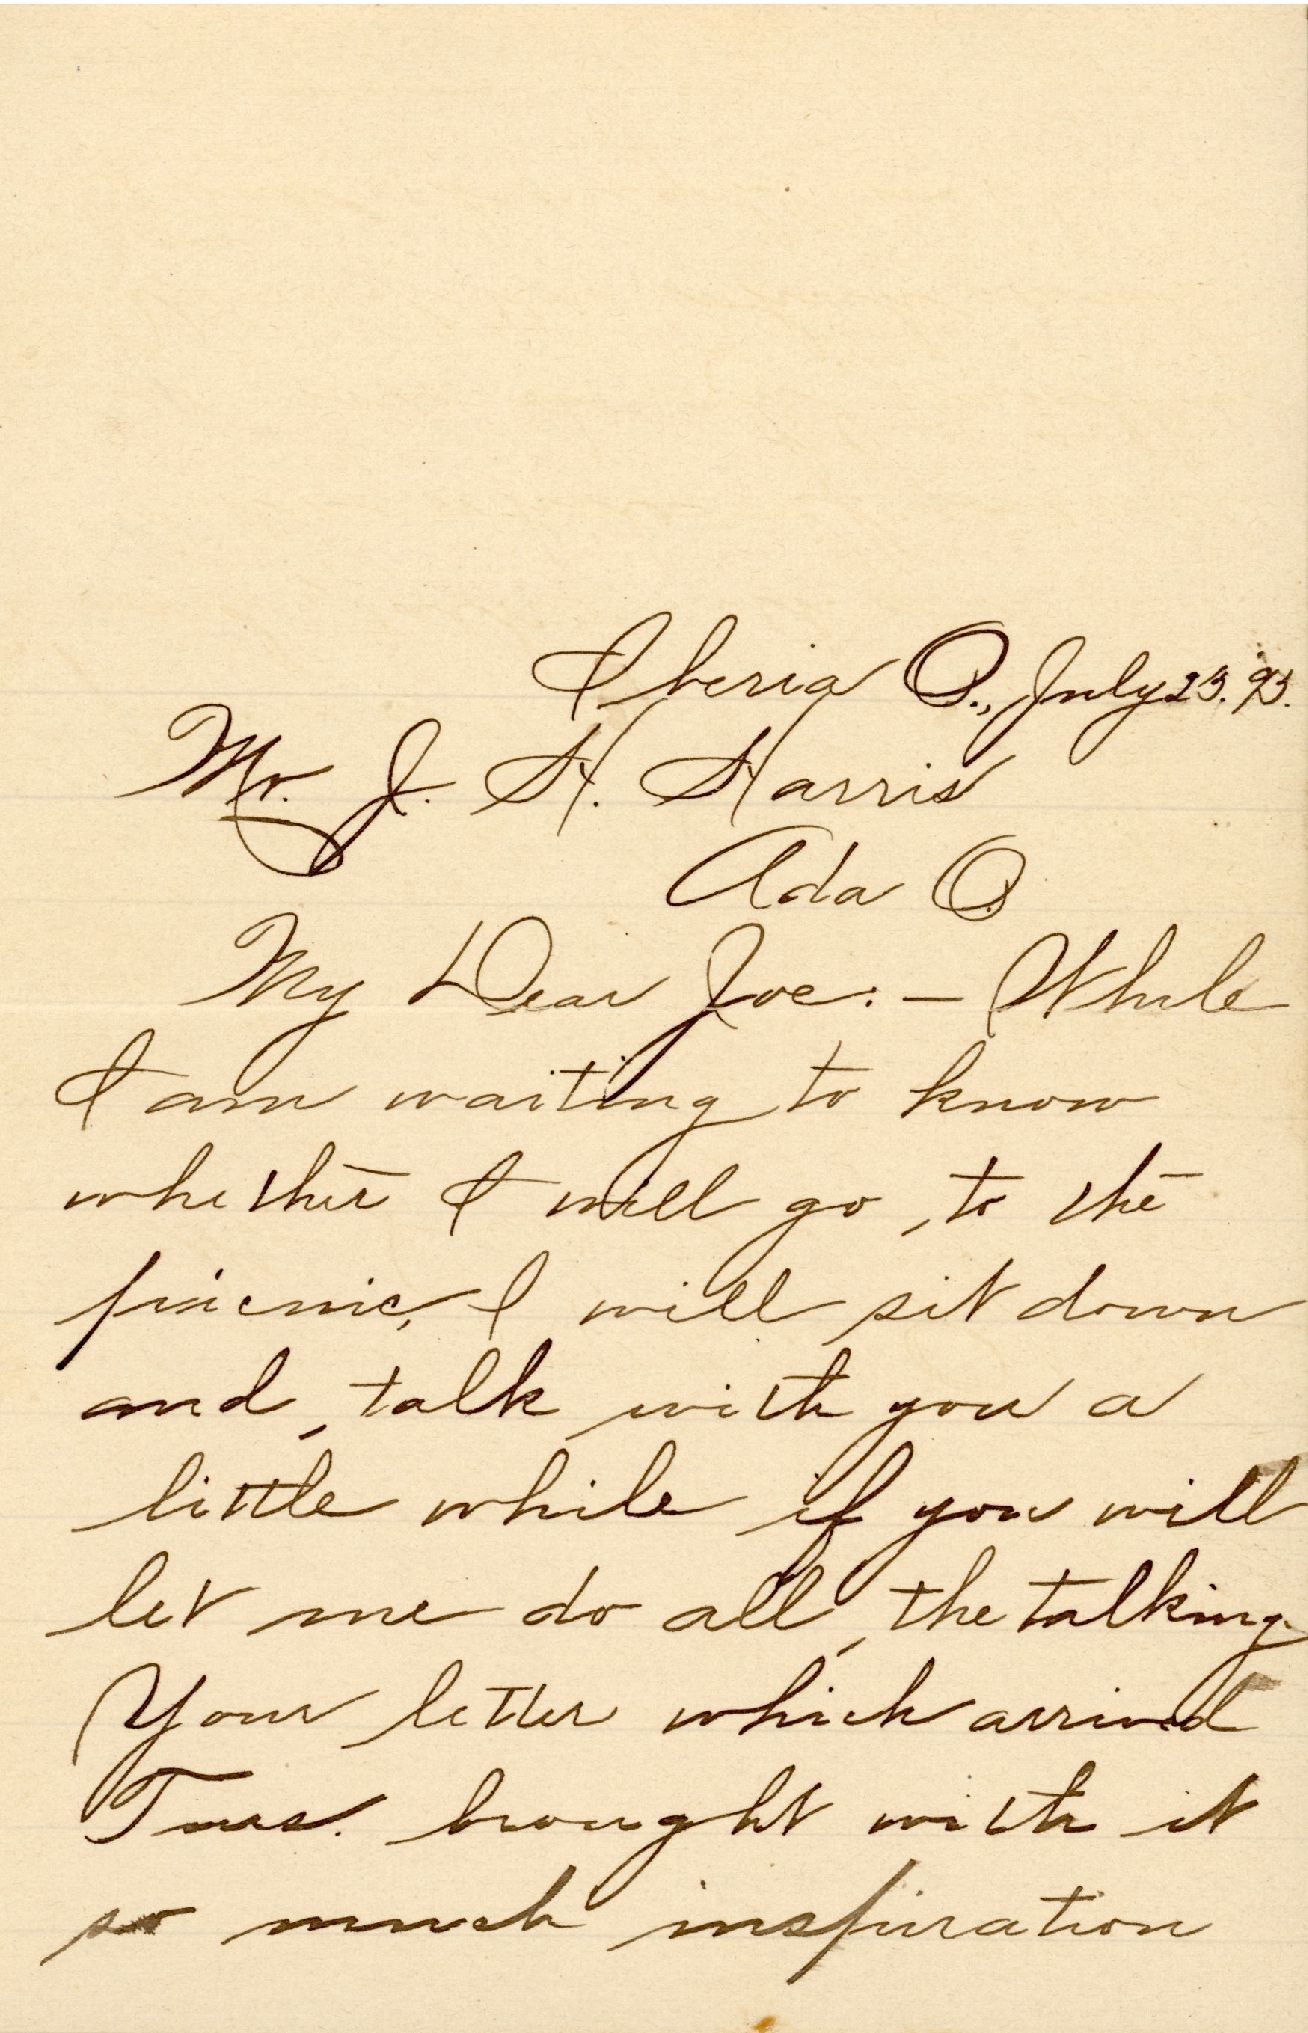 Iberia O., July 23. 93.
Mr. J. H. Harris
Ada O.
My Dear Joe: — While
I am waiting to know
whether I will go to the
picnic, I will sit down
and talk with you a
little while if you will
let me do all the talking.
Your letter which arrived
Tues. brought with it
so much inspiration